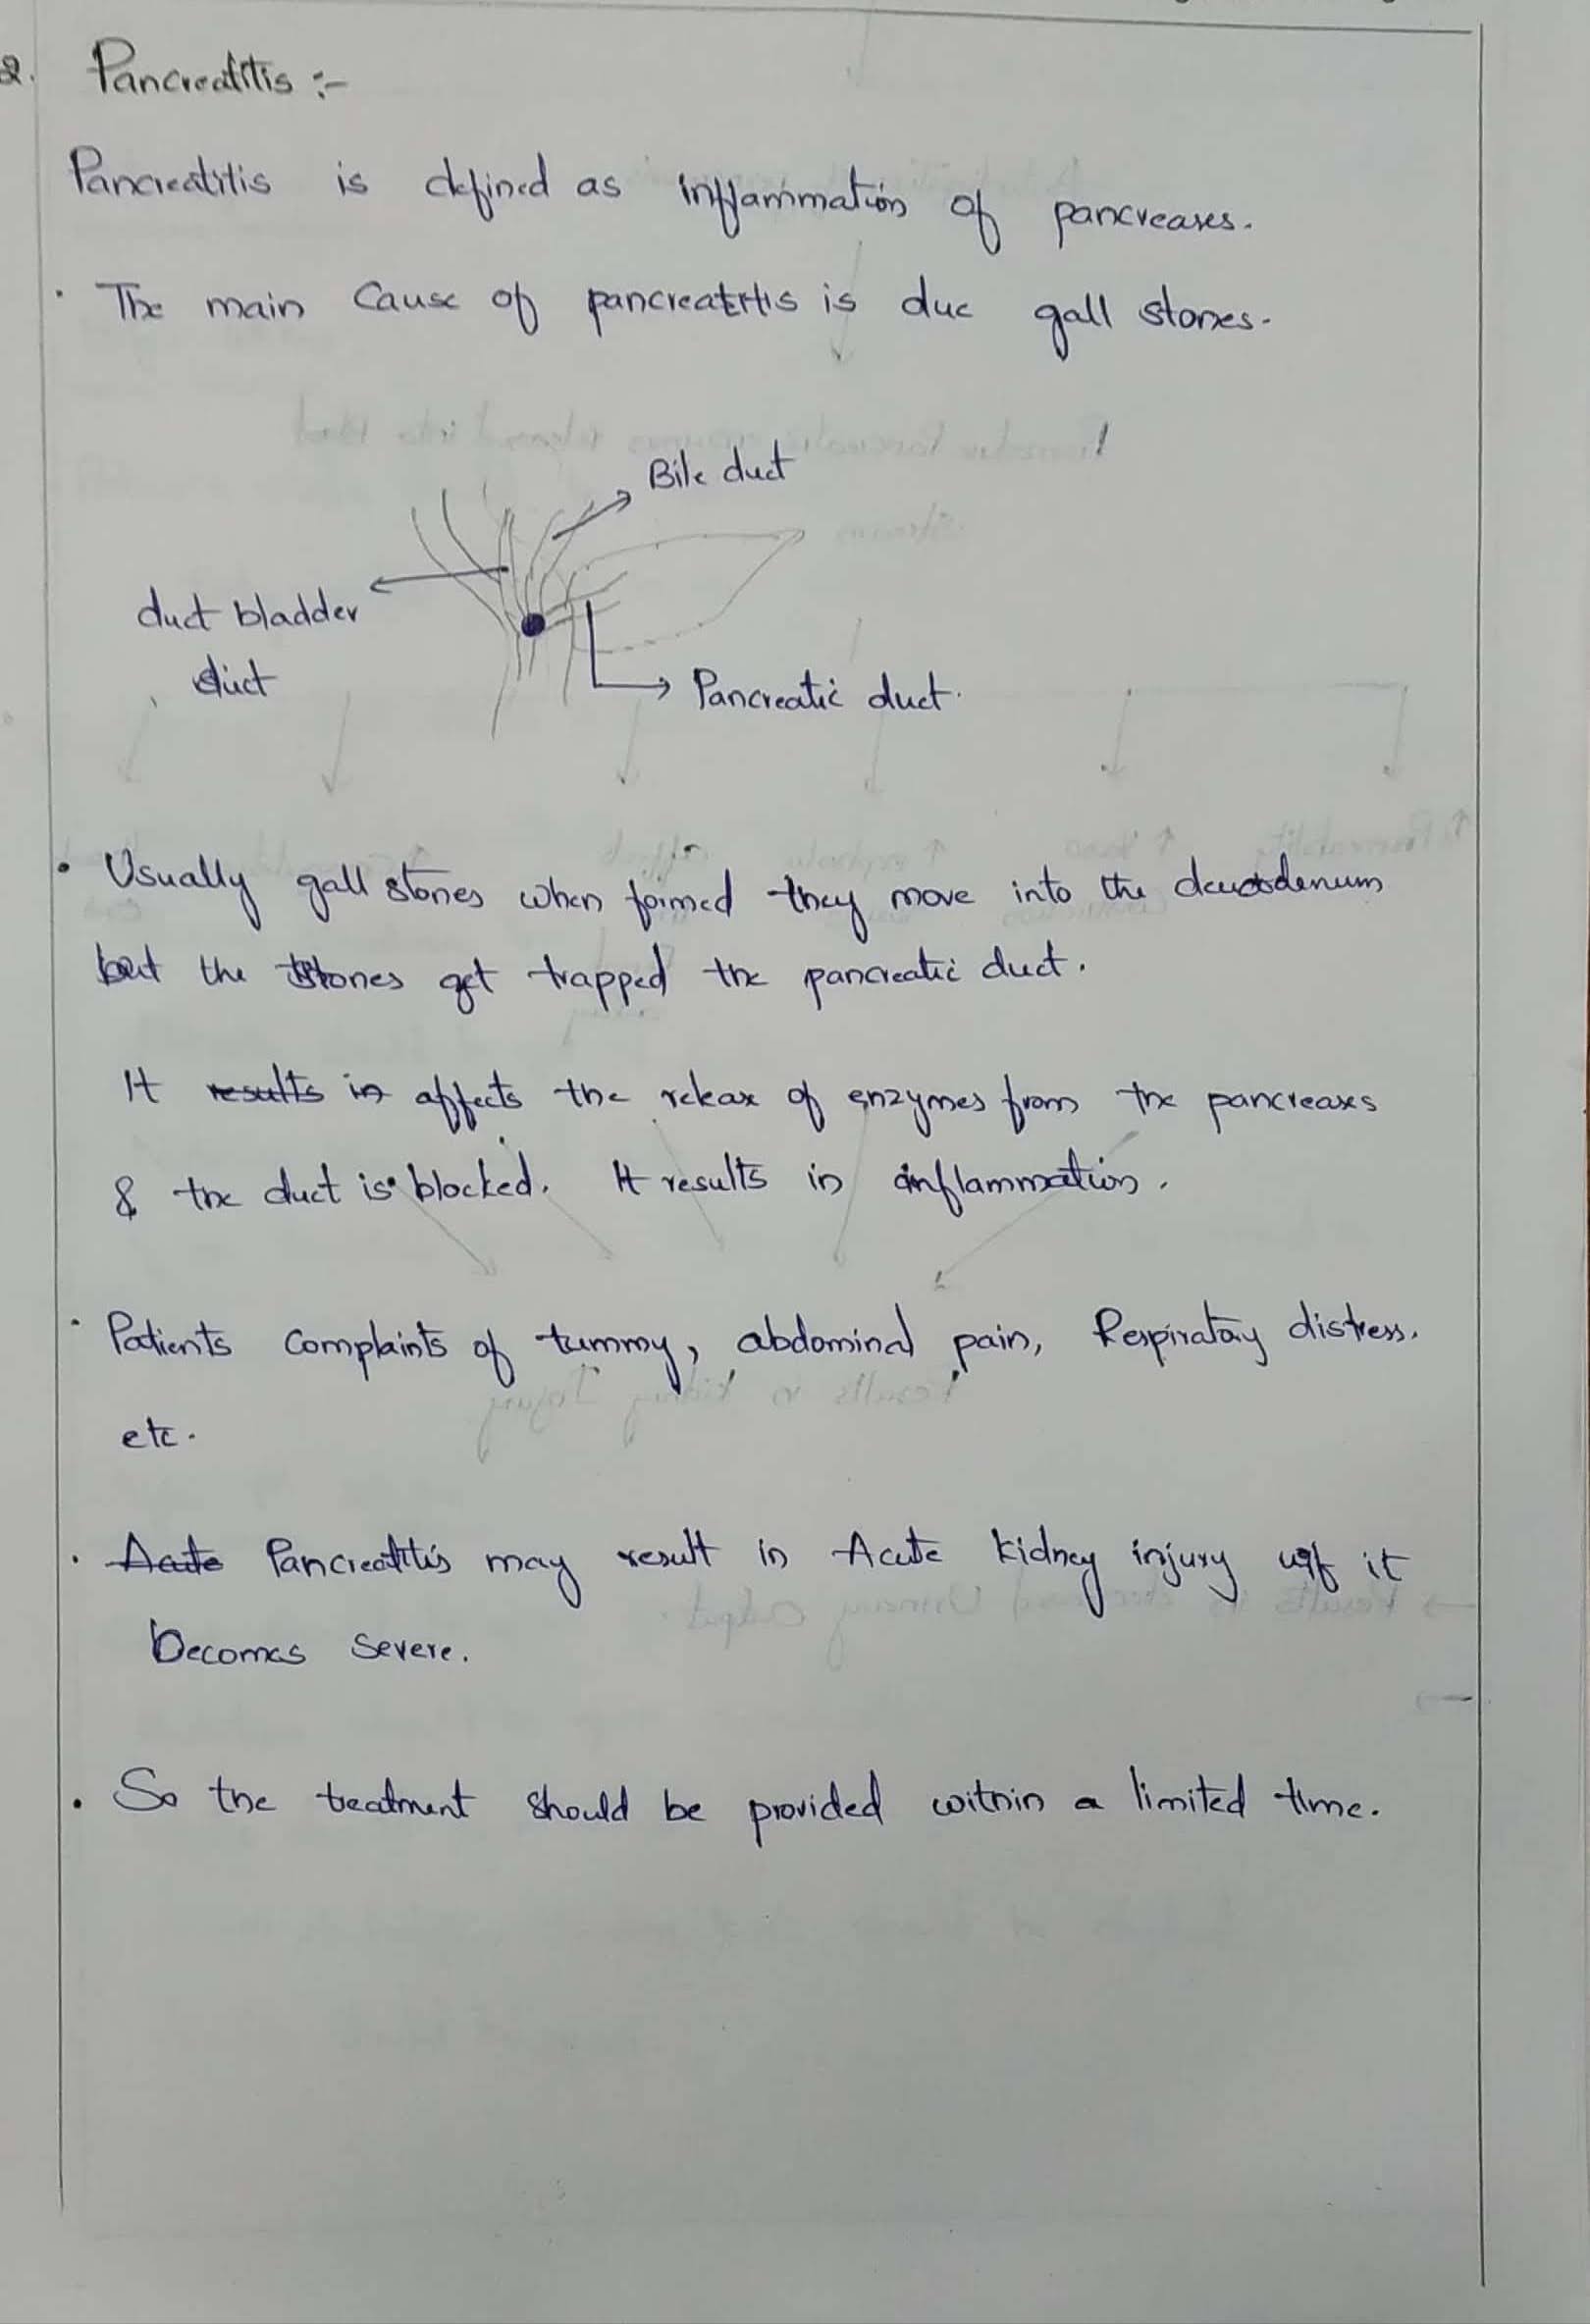 2. Pancreatitis :-
Pancreatitis is defined as inflammation of pancreases.
· The main cause of pancreatitis is due gall stones.
Bile duct
duct bladder
duct
Pancreatic duct.
· Usually gall stones when formed they move into the deuodenum
but the stones get trapped the pancreatic duct.
It results in affects the release of enzymes from the pancreases
& the duct is blocked. It results in inflammation.
· Patients complaints of tummy, abdominal pain, Respiratory distress.
etc.
· Acute Pancreatitis may result in Acute kidney injury if it
becomes severe.
· So the treatment should be provided within a limited time.